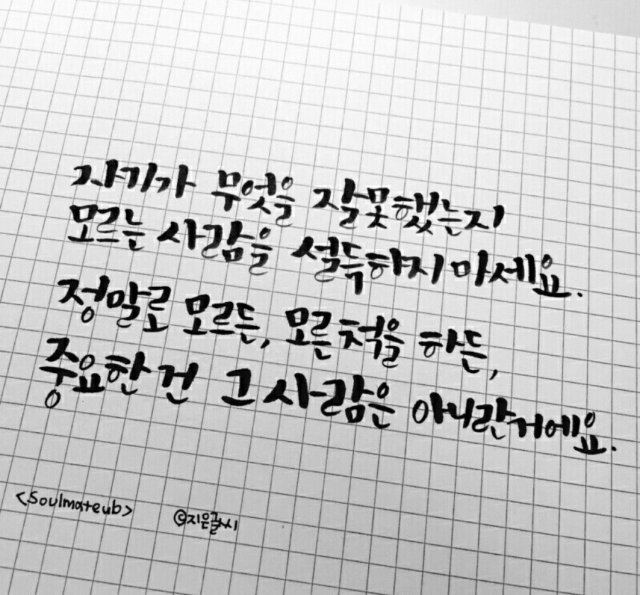 자기가 무엇을 잘못했는지
모르는 사람을 설득하지 마세요.
정말로 모르든, 모른척을 하든,
중요한 건 그 사람은 아니란거에요.
<Soulmateub> ©지은글씨